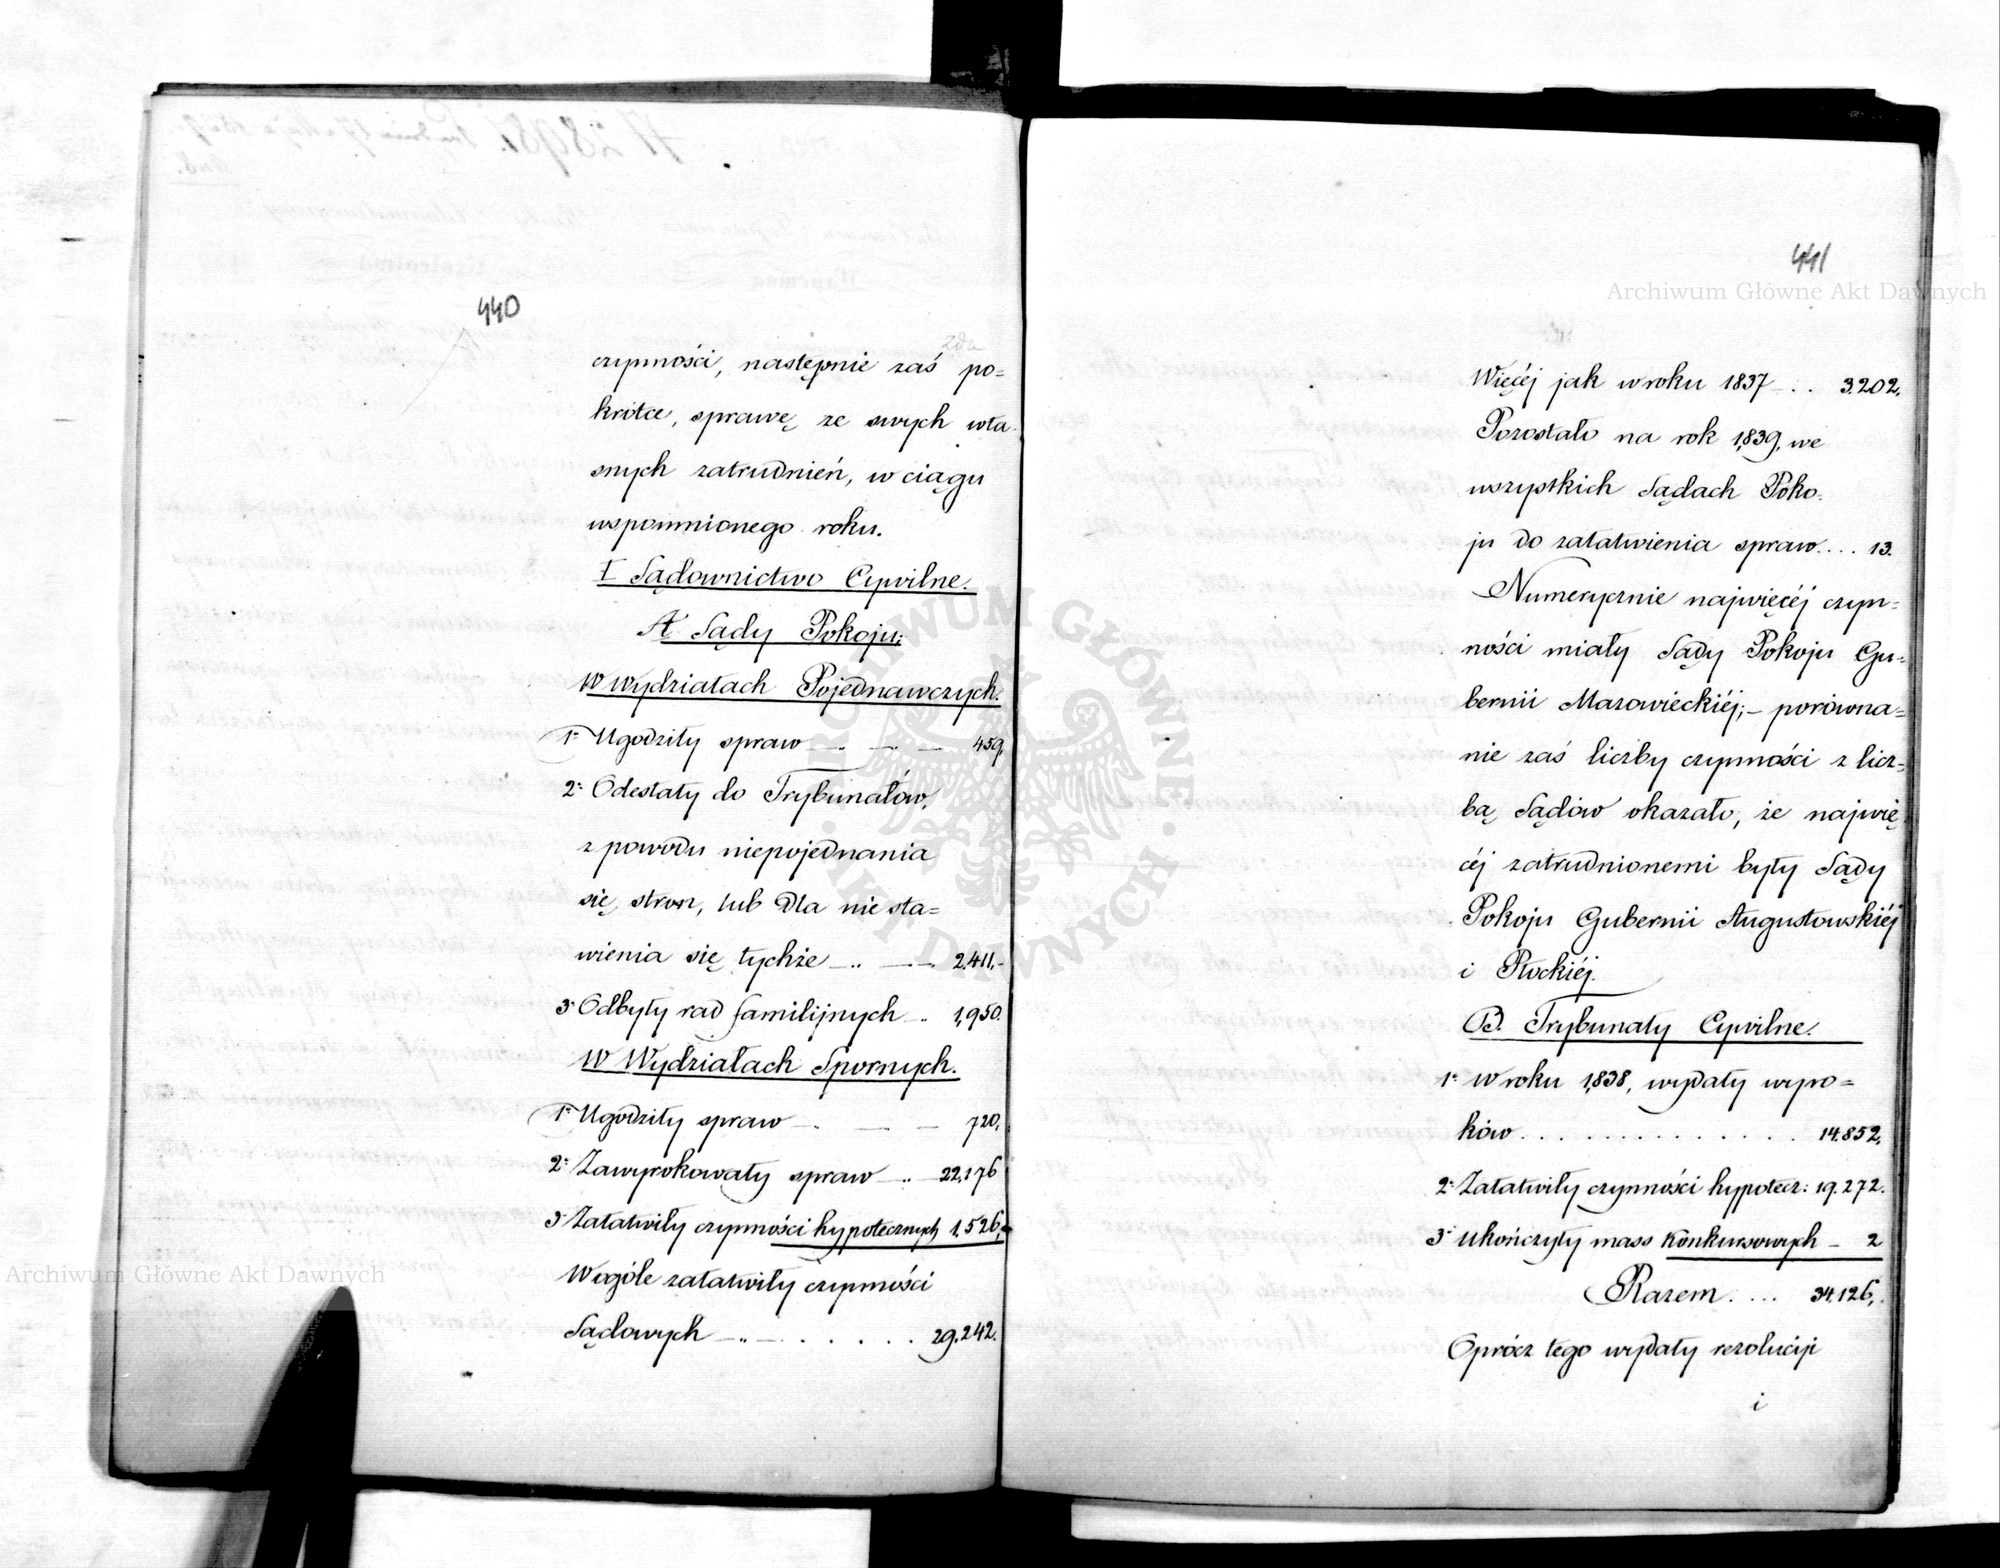 440
czynności, następnie zaś po=
krótce, sprawę ze swych wła
snych zatrudnień, w ciągu
wspomnionego roku.
I Sądownictwo Cywilne.
A Sądy Pokoju;
W Wydziałach Pojednawczych.
1º Ugodziły spraw 459.
2º Odesłały do Trybunałów,
z powodu niepojednania
się stron, lub dla niesta=
wienia się tychże 2,411.
3º Odbyły rad familijnych 1,950.
W Wydziałach Spornych.
1º Ugodziły spraw 720.
2º Zawyrokowały spraw 22,176
3º Załatwiły czynności hypotecznych 1,526.
W ogóle załatwiły czynności
Sądowych . . . . . 29.242.
441
Więcéj jak w roku 1837 . . . 3.202.
Pozostało na rok 1839, we
wszystkich Sądach Poko=
ju do załatwienia spraw.... 13.
Numerycznie najwięcéj czyn=
ności miały Sądy Pokoju Gu=
bernii Mazowieckiéj;– porówna=
nie zaś liczby czynności z licz=
bą Sądów okazało, że najwię
céj zatrudnionemi były Sądy
Pokoju Gubernii Augustowskiéj
i Płockiéj.
B. Trybunały Cywilne.
1º W roku 1838, wydały wyro=
ków . . . . . . . . . . . . . . 14.852.
2º Załatwiły czynności hypotecz: 19.272.
3º Ukończyły mass konkursowych – 2
Razem . . . . 34.126.
Oprócz tego wydały rezolucji
i
Archiwum Główne Akt Dawnych
Archiwum Główne Akt Dawnych
ARCHIWUM GŁÓWNE · AKT DAWNYCH ·